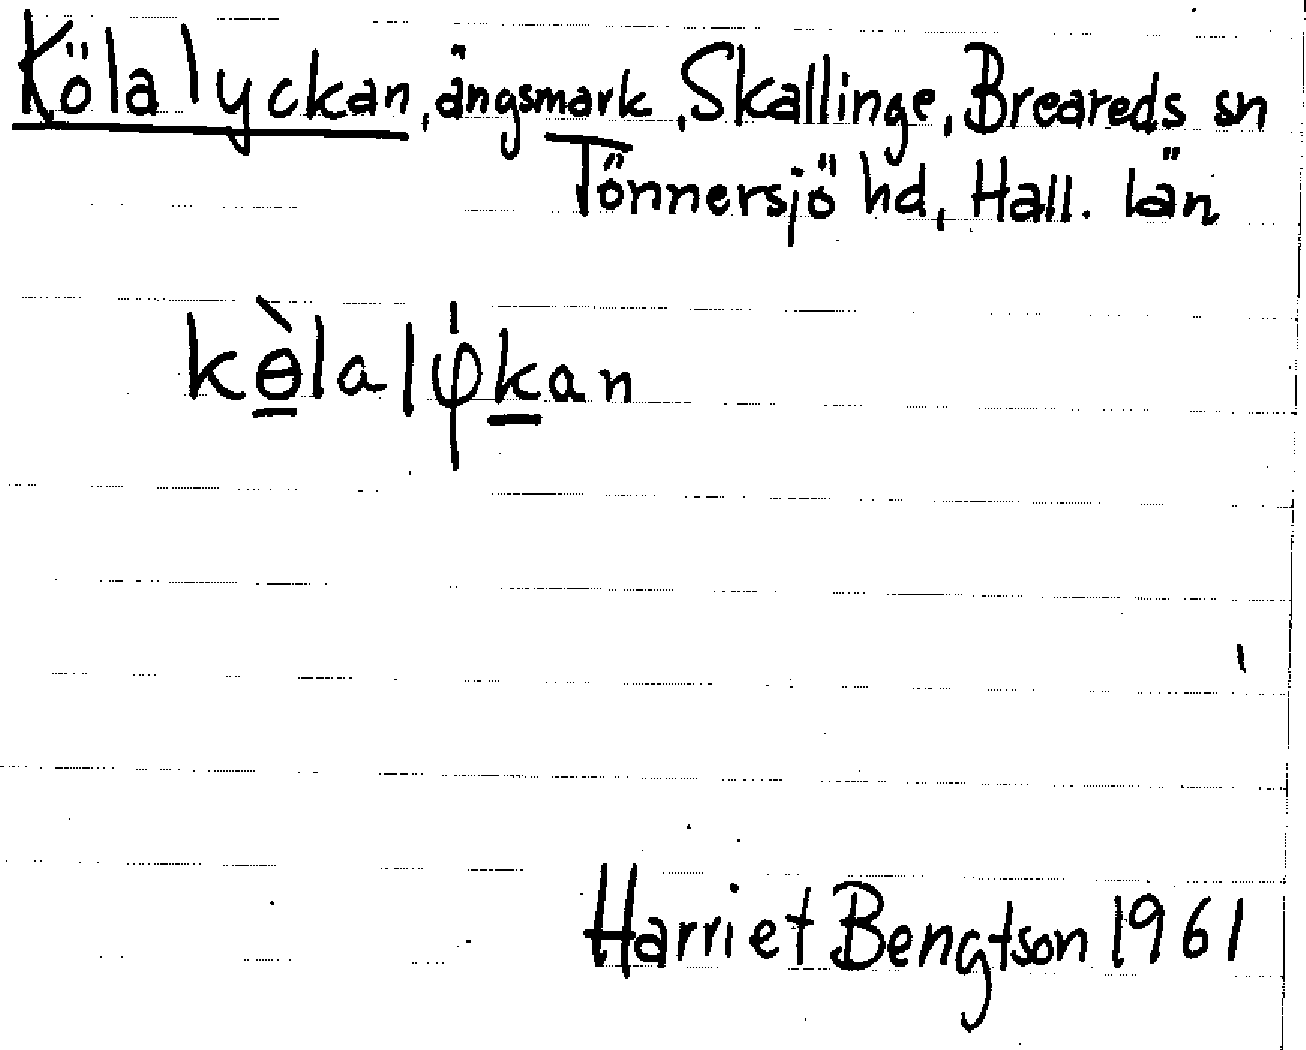 Kölalyckan, ängsmark, Skallinge, Breareds sn
Tönnersjö hd, Hall. län
kɵ̀lalφkan
Harriet Bengtson 1961